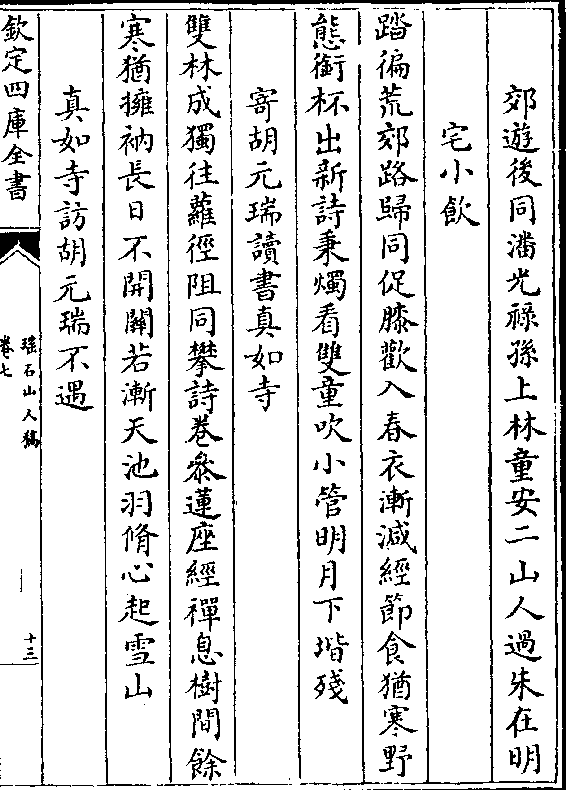 郊遊後同潘光祿孫上林童安二山人過朱在明
宅小飲
踏徧荒郊路歸同促膝歡入春衣漸減經節食猶寒野
態銜杯出新詩秉燭看雙童吹小管明月下堦殘
寄胡元瑞讀書真如寺
雙林成獨往蘿徑阻同攀詩卷叅蓮座經禪息樹間餘
寒猶擁衲長日不開關若漸天池羽脩心起雪山
真如寺訪胡元瑞不遇
欽定四庫全書
瑤石山人稿
卷七
十三